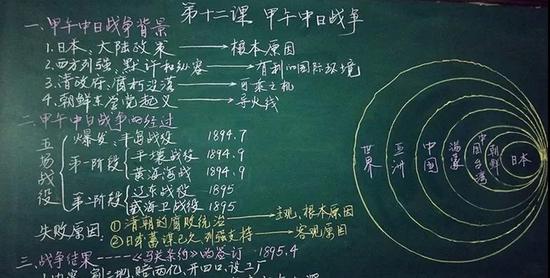 第十二课 甲午中日战争
一、甲午中日战争背景
1.日本、大陆政策 → 根本原因
2.西方列强、默许和纵容 → 有利的国际环境
3.清政府、腐朽没落 → 可乘之机
4.朝鲜东学党起义 → 导火线
二、甲午中日战争的经过
五场战役
爆发：丰岛战役 1894.7
第一阶段 平壤战役 1894.9
黄海海战 1894.9
第二阶段 辽东战役 1895
威海卫战役 1895
失败原因
①清朝的腐败统治 → 主观、根本原因
②日本蓄谋已久,列强支持 → 客观原因
三、战争结果----《马关条约》的签订 1895.4
世界
亚洲
中国
满蒙
中国台湾
朝鲜
日本